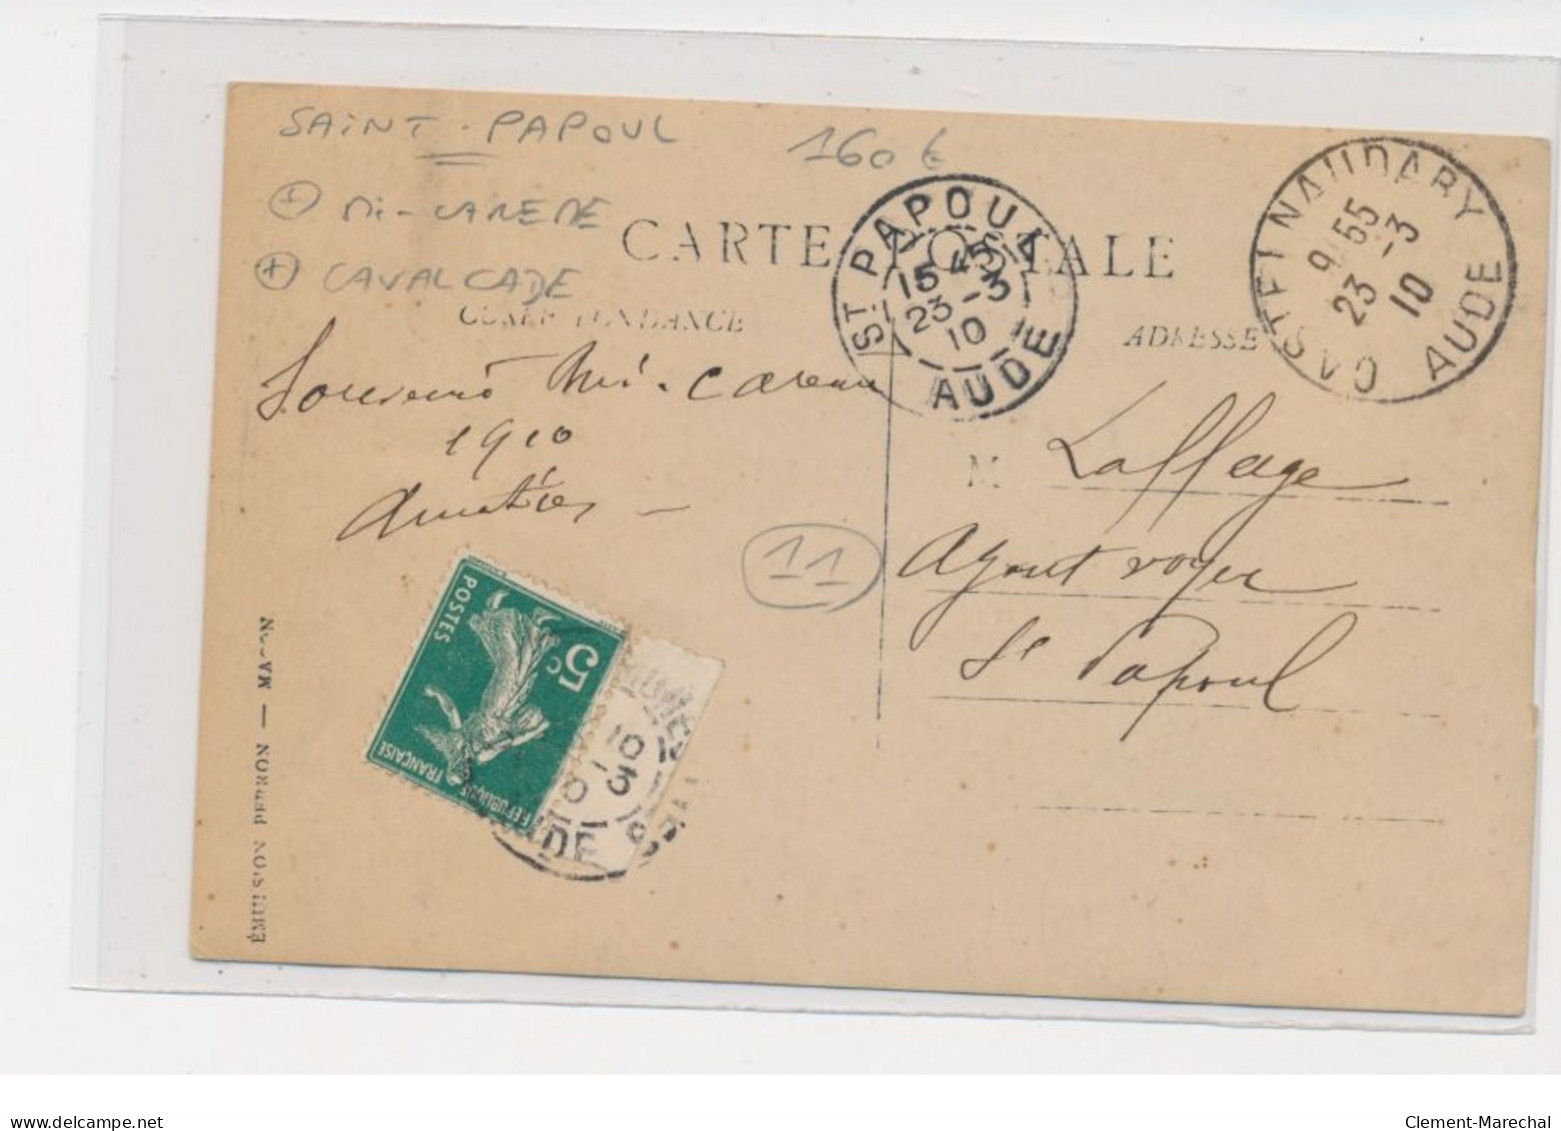 SAINT-PAPOUL
160 €
+ MI-CAREME
+ CAVALCADE
CARTE POSTALE
CORRESPONDANCE
ADRESSE
ST PAPOUL
15 45
23-3
10
AUDE
CASTELNAUDARY
9 55
23 -3
10
AUDE
Souvenir Mi-Careme
1910
Amitiés
M Laffage
Agent voyer
St Papoul
11
POSTES
5c
REPUBLIQUE FRANÇAISE
10
-3
DE
ÉMULSION PERRON — MACON
Clement-Marechal